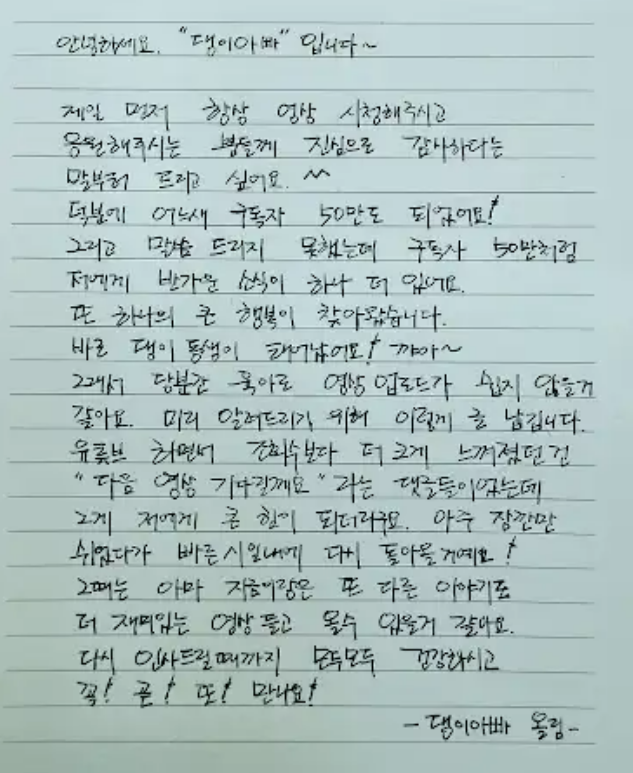 안녕하세요. "댕이아빠" 입니다~
제일 먼저 항상 영상 시청해주시고
응원해주시는 분들께 진심으로 감사하다는
말부터 드리고 싶어요. ^^
덕분에 어느새 구독자 50만도 되었어요!
그리고 말씀 드리지 못했는데 구독자 50만처럼
저에게 반가운 소식이 하나 더 있어요.
또 하나의 큰 행복이 찾아왔습니다.
바로 댕이 동생이 태어났어요! 꺄아~
그래서 당분간 육아로 영상 업로드가 쉽지 않을거
같아요. 미리 알려드리기 위해 이렇게 글 남깁니다.
유튜브 하면서 조회수보다 더 크게 느껴졌던 건
"다음 영상 기다릴께요" 라는 댓글들이었는데
그게 저에게 큰 힘이 되더라구요. 아주 잠깐만
쉬었다가 빠른시일내에 다시 돌아올거예요!
그때는 아마 지금이랑은 또 다른 이야기로
더 재미있는 영상 들고 올수 있을거 같아요.
다시 인사드릴때까지 모두모두 건강하시고
꼭! 곧! 또! 만나요!
- 댕이아빠 올림-